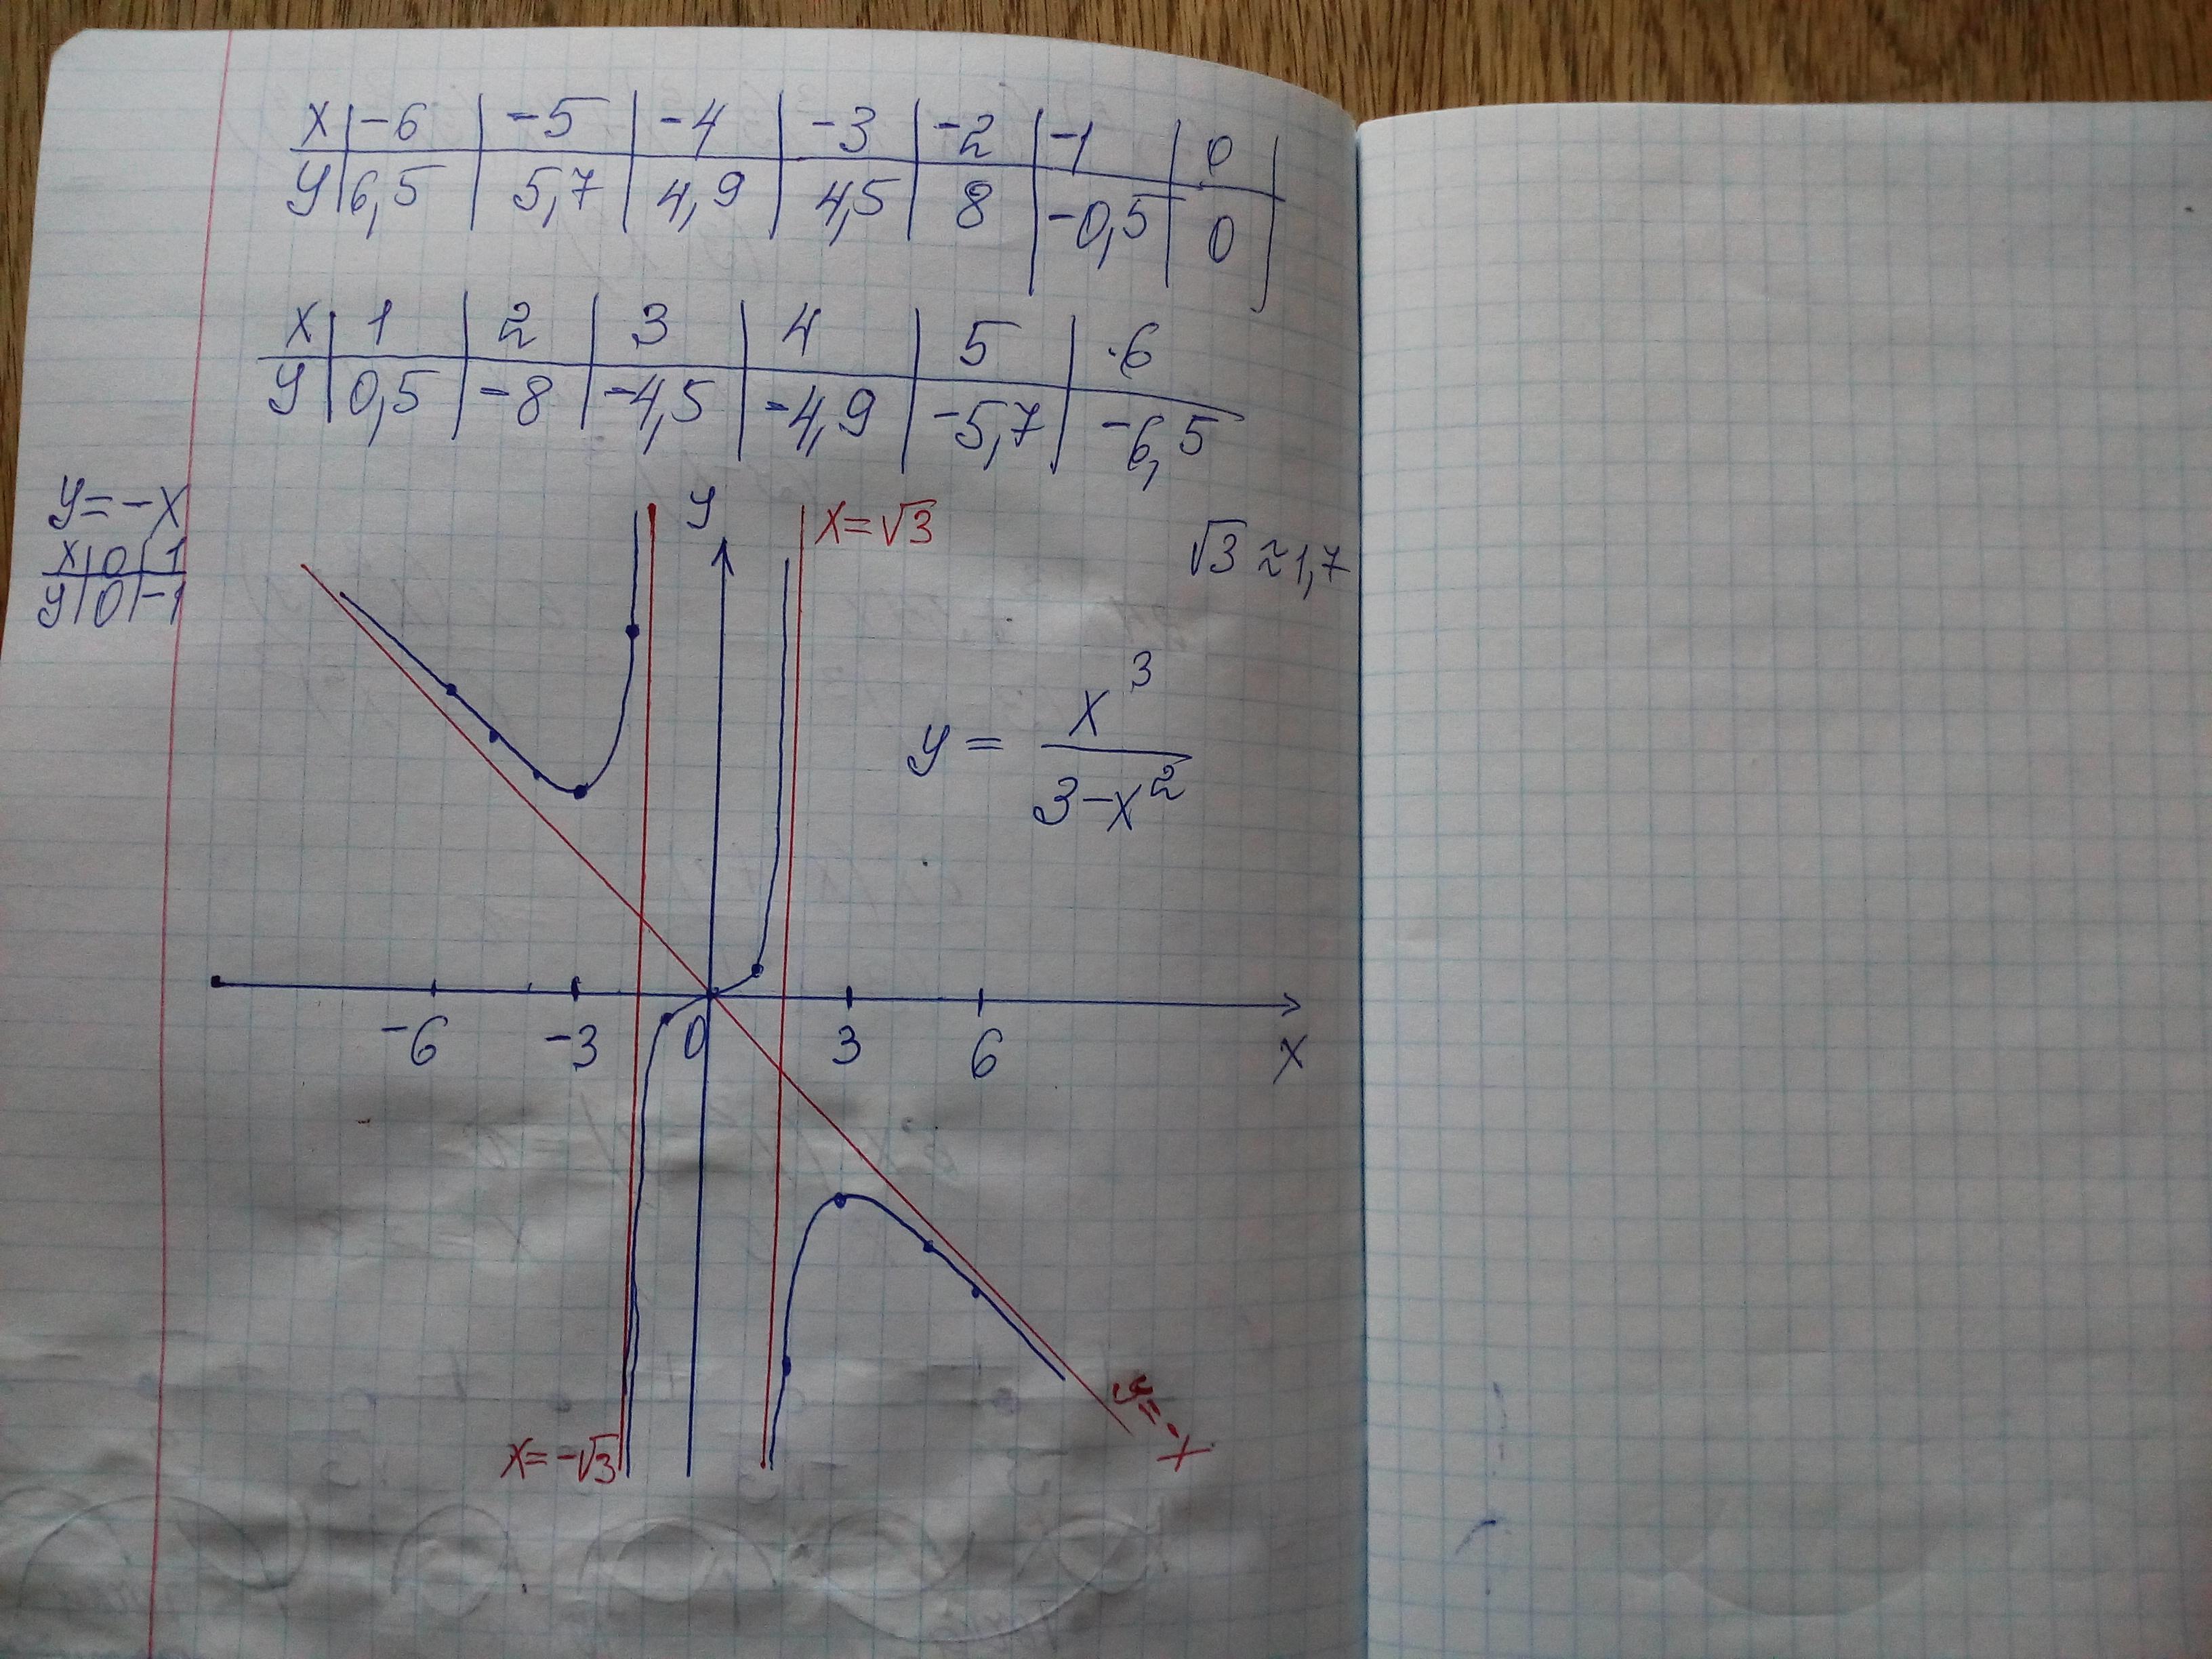 x | -6 | -5 | -4 | -3 | -2 | -1 | 0
y | 6,5 | 5,7 | 4,9 | 4,5 | 8 | -0,5 | 0
x | 1 | 2 | 3 | 4 | 5 | 6
y | 0,5 | -8 | -4,5 | -4,9 | -5,7 | -6,5
y = -x
x | 0 | 1
y | 0 | -1
y
x = √3
√3 ≈ 1,7
y = x³ / (3 - x²)
-6 -3 0 3 6 x
y = -x
x = -√3